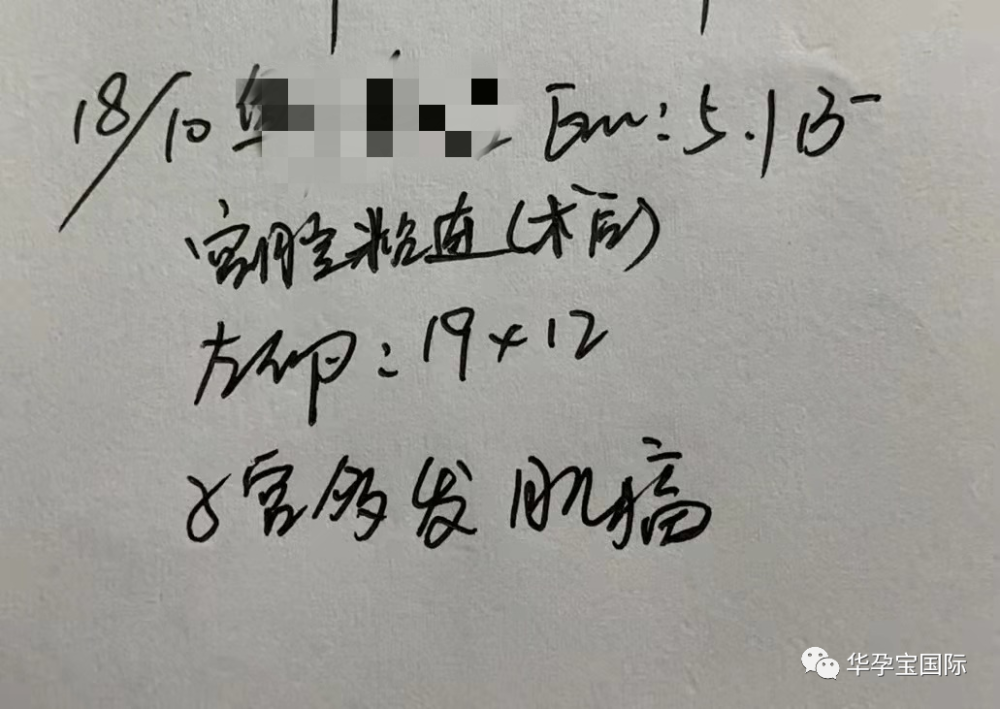 18/10 Em: 5.1 B-
宫腔粘连(术后)
左卵: 19×12
子宫多发肌瘤
华孕宝国际